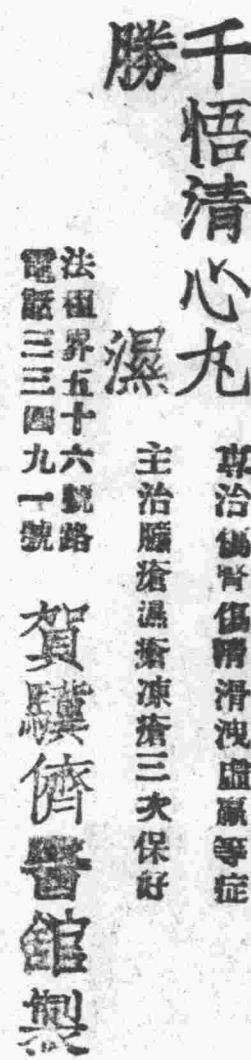 千悟清心丸
專治傷腎傷精滑洩虛羸等症
勝濕
主治臁瘡濕瘡凍瘡三次保好
法租界五十六號路
電話三三四九一號
賀驥儕醫館製